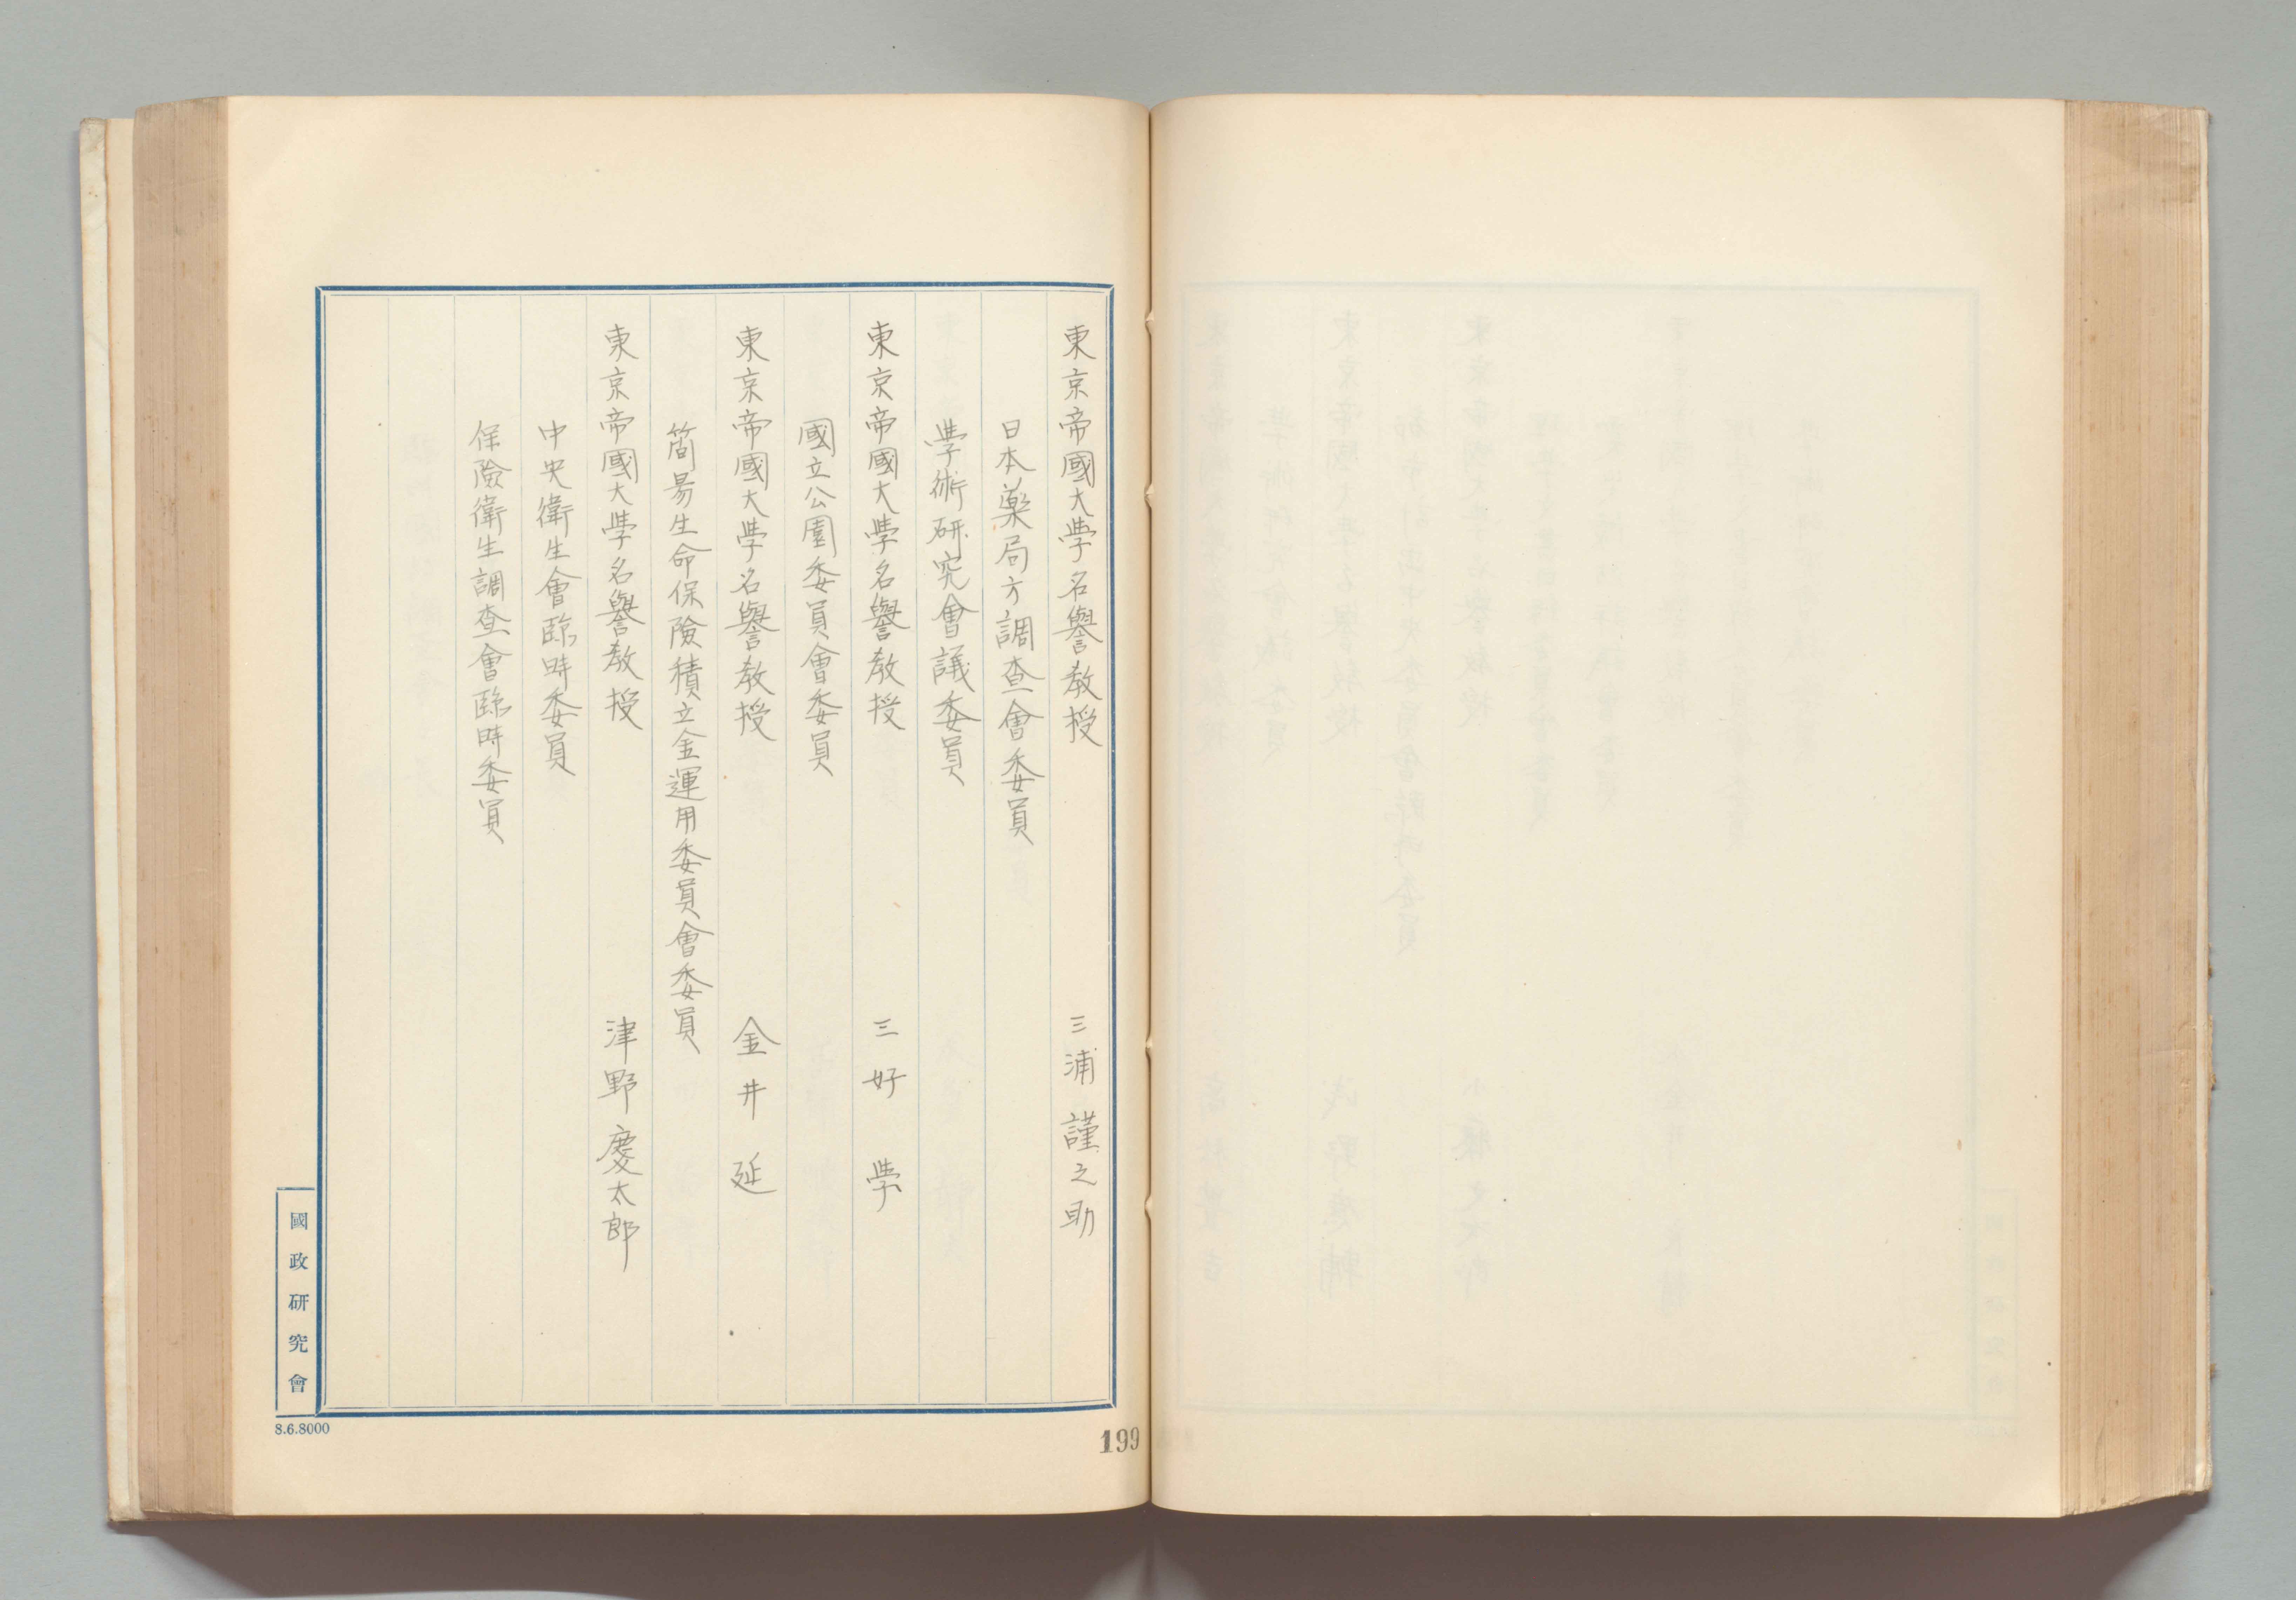 東京帝國大學名譽教授　三浦謹之助
日本藥局方調查會委員
學術研究會議委員
東京帝國大學名譽教授　三好學
國立公園委員會委員
東京帝國大學名譽教授　金井延
簡易生命保險積立金運用委員會委員
東京帝國大學名譽教授　津野慶太郎
中央衛生會臨時委員
保險衛生調查會臨時委員
國政研究會
8.6.8000
199